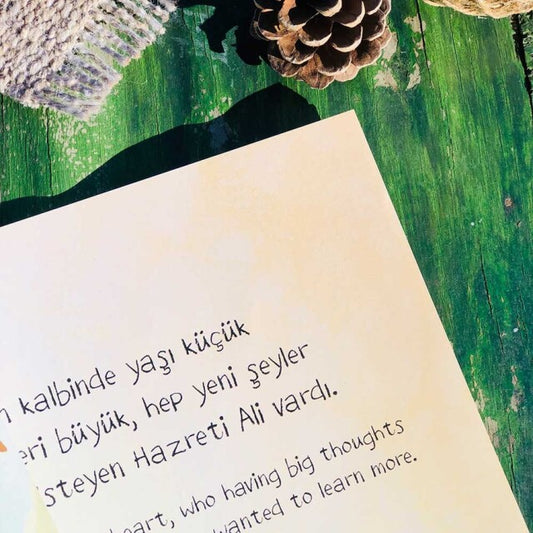 kalbinde yaşı küçük
büyük, hep yeni şeyler
Hazreti Ali vardı.
who having big thoughts
wanted to learn more.